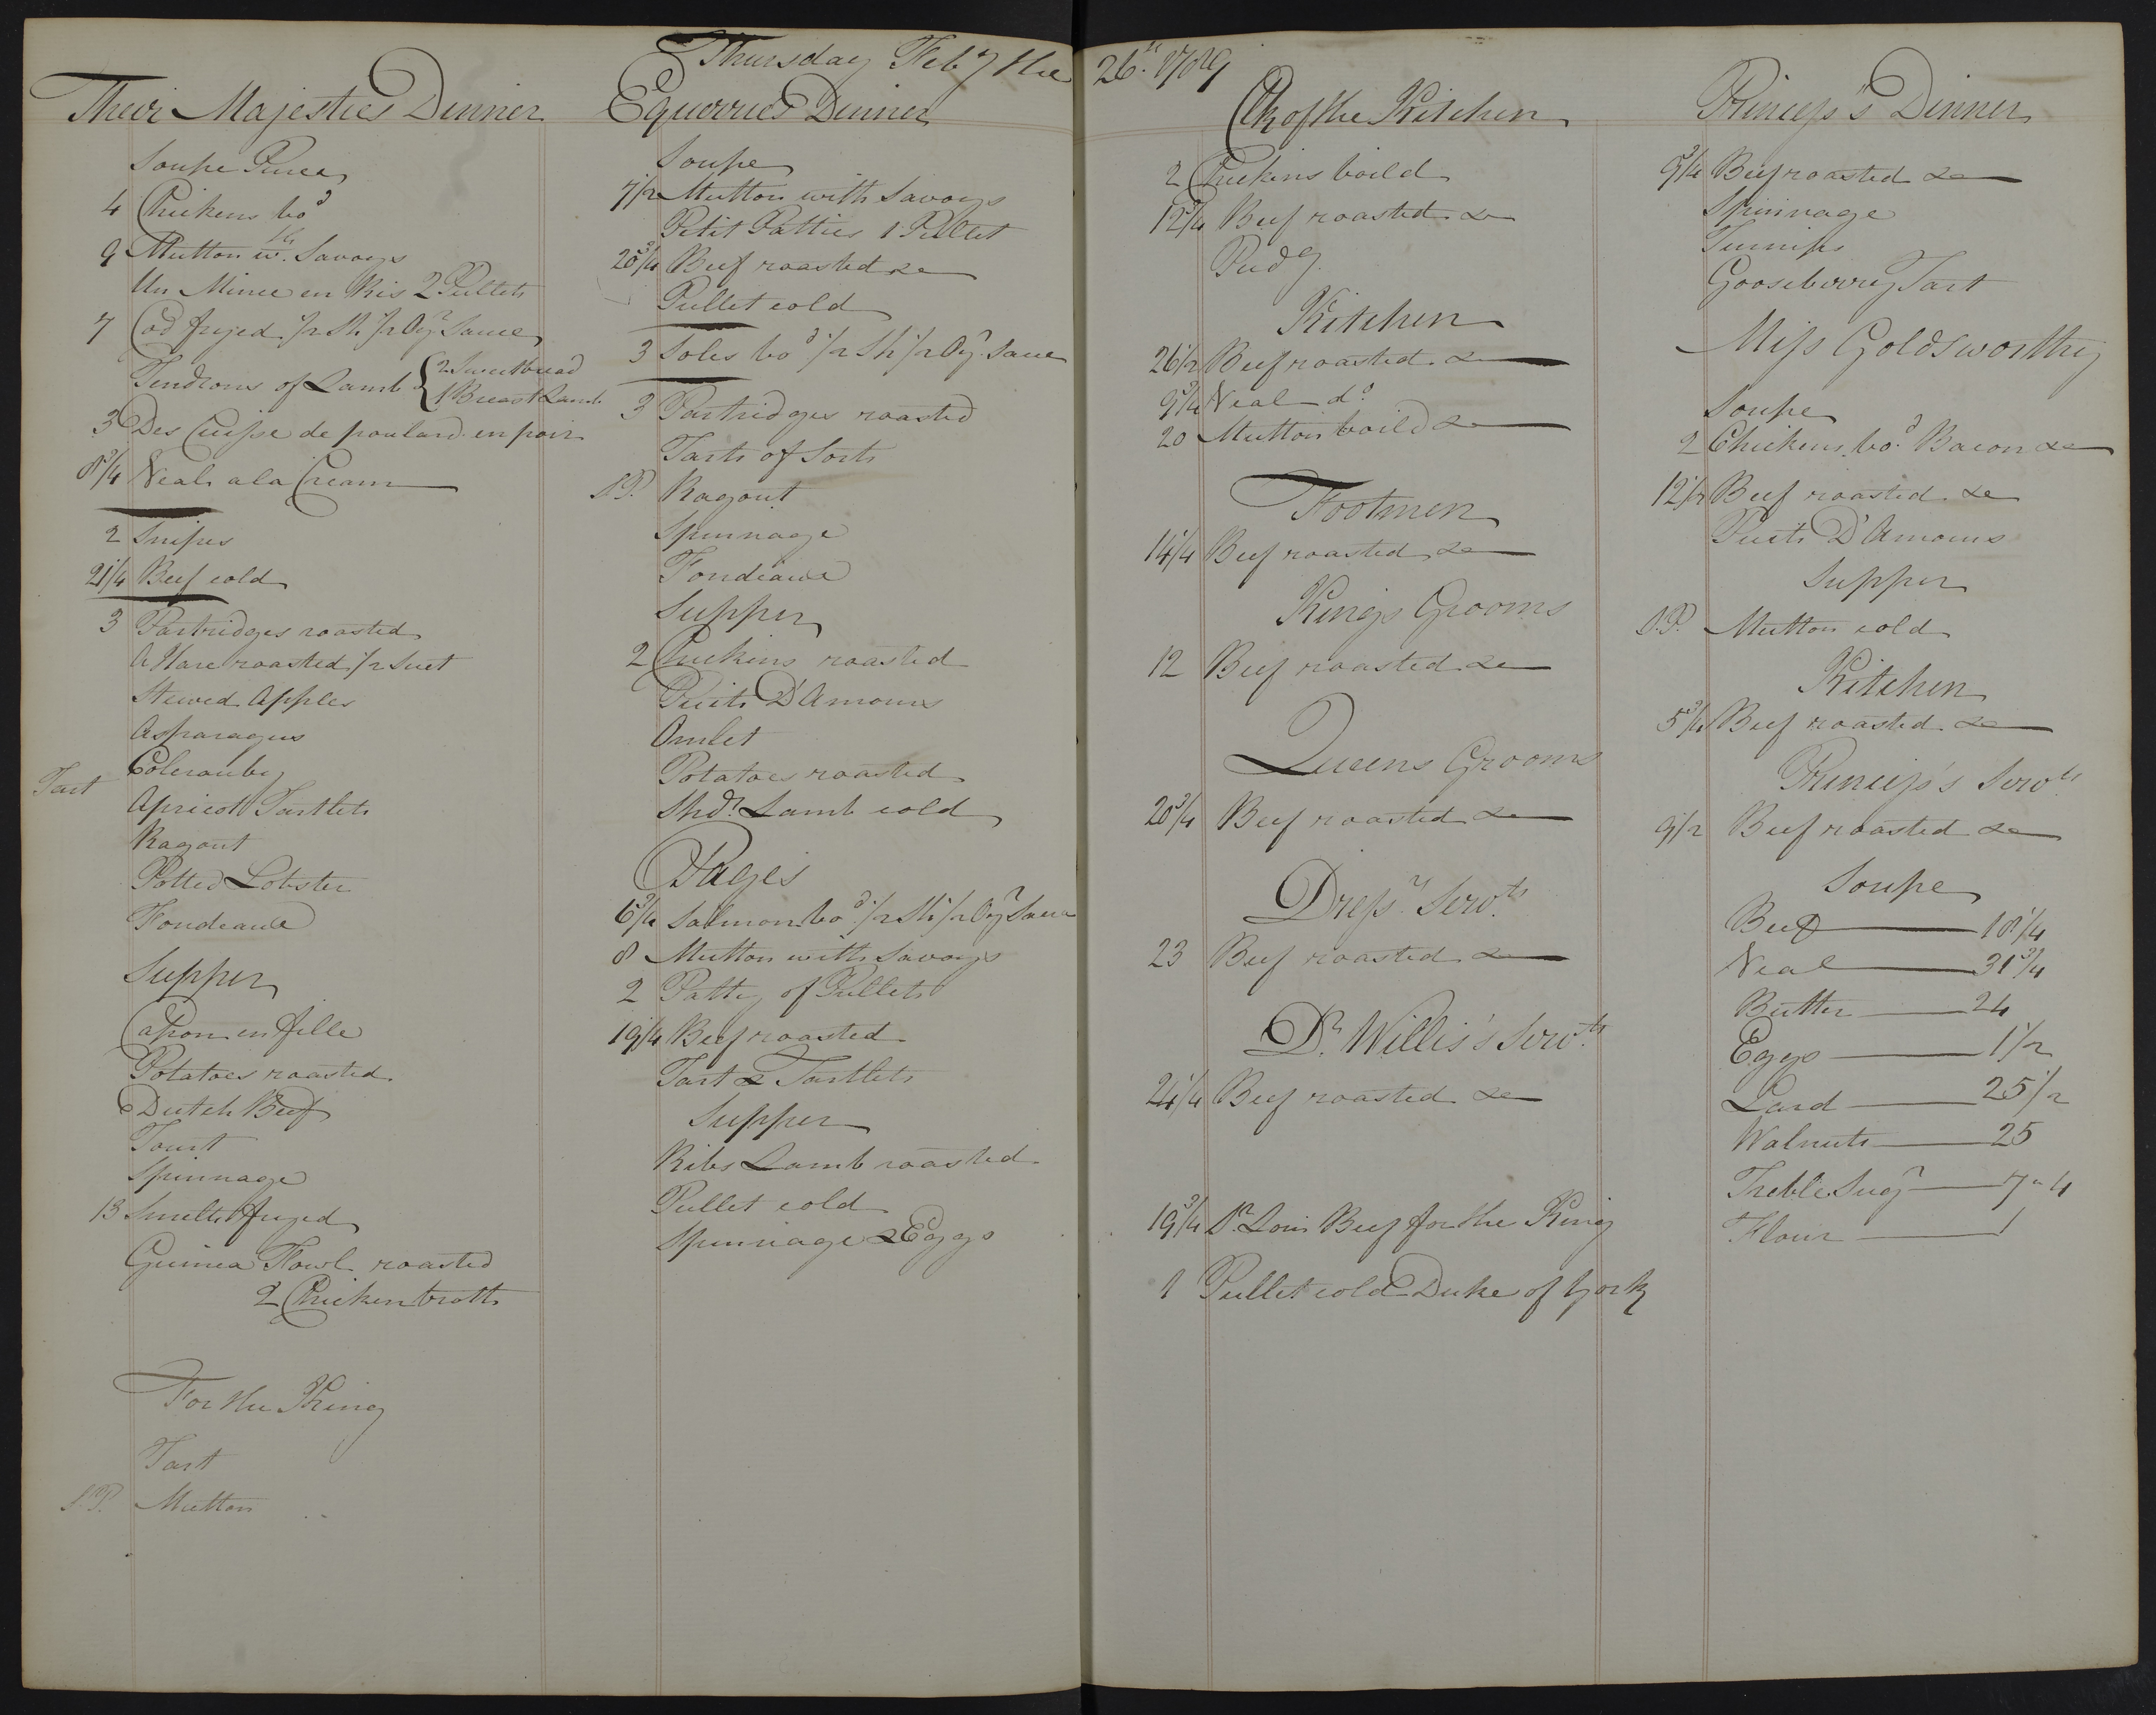 Thursday Feby the 26th 1789
Their Majesties Dinner
Soupe Puree
4 Chickens bod
9 Mutton wth Savoys
Un Mince en Ris 2 Pullets
7 Cod fryed 1/2 Sh 1/2 Oyr Sauce
Tendrons of Lamb { 2 Sweetbread
1 Breast Lamb
3 Des Cuisse de poulard en poir
8 3/4 Veal a la Cream
2 Snipes
21 1/4 Beef cold
3 Partridges roasted
A Hare roasted 1/2 Suet
Stewed Apples
Asparagus
Colerauby
Tart
Apricot Tartlets
Ragout
Potted Lobster
Fondeaue
Supper
Capon en fille
Potatoes roasted
Dutch Beef
Tourt
Spinnage
13 Smelts fryed
Guinea Fowl roasted
2 Chicken broth
For the King
Tart
S.P. Mutton
Equerries Dinner
Soupe
7 1/2 Mutton with Savoys
Petit Patties 1 Pullet
20 3/4 Beef roasted &
Pullet cold
3 Soles bod 1/2 Sh 1/2 Oyr Sauce
3 Partridges roasted
Tarts of Sorts
S.P. Ragout
Spinnage
Fondeaue
Supper
2 Chickens roasted
Puits D'Amours
Omlet
Potatoes roasted
Shdr Lamb cold
Pages
6 3/4 Salmon bod 1/2 Sh 1/2 Oyr Sauce
8 Mutton with Savoys
2 Patty of Pullets
19 1/4 Beef roasted
Tart & Tartlets
Supper
Ribs Lamb roasted
Pullet cold
Spinnage & Eggs
Clk of the Kitchen
2 Chickens boild
12 3/4 Beef roasted &
Pudg
Kitchen
26 1/2 Beef roasted &
9 3/4 Veal do
20 Mutton boild &
Footmen
14 1/4 Beef roasted &
Kings Grooms
12 Beef roasted &
Queens Grooms
20 3/4 Beef roasted &
Dressr Servts
23 Beef roasted &
Dr Willis's Servts
24 1/4 Beef roasted &
19 3/4 Sr Loin Beef for the King
1 Pullet cold Duke of York
Princess's Dinner
9 3/4 Beef roasted &
Spinnage
Turnips
Gooseberry Tart
Miss Goldsworthy
Soupe
2 Chickens bod Bacon &
12 1/2 Beef roasted &
Puits D'Amours
Supper
S.P. Mutton cold
Kitchen
5 3/4 Beef roasted &
Princess's Servts
9 1/2 Beef roasted &
Soupe
Beef 18 1/4
Veal 31 3/4
Butter 24
Eggs 1 1/2
Lard 25 1/2
Walnuts 25
Treble Sugr 7 " 4
Flour 1